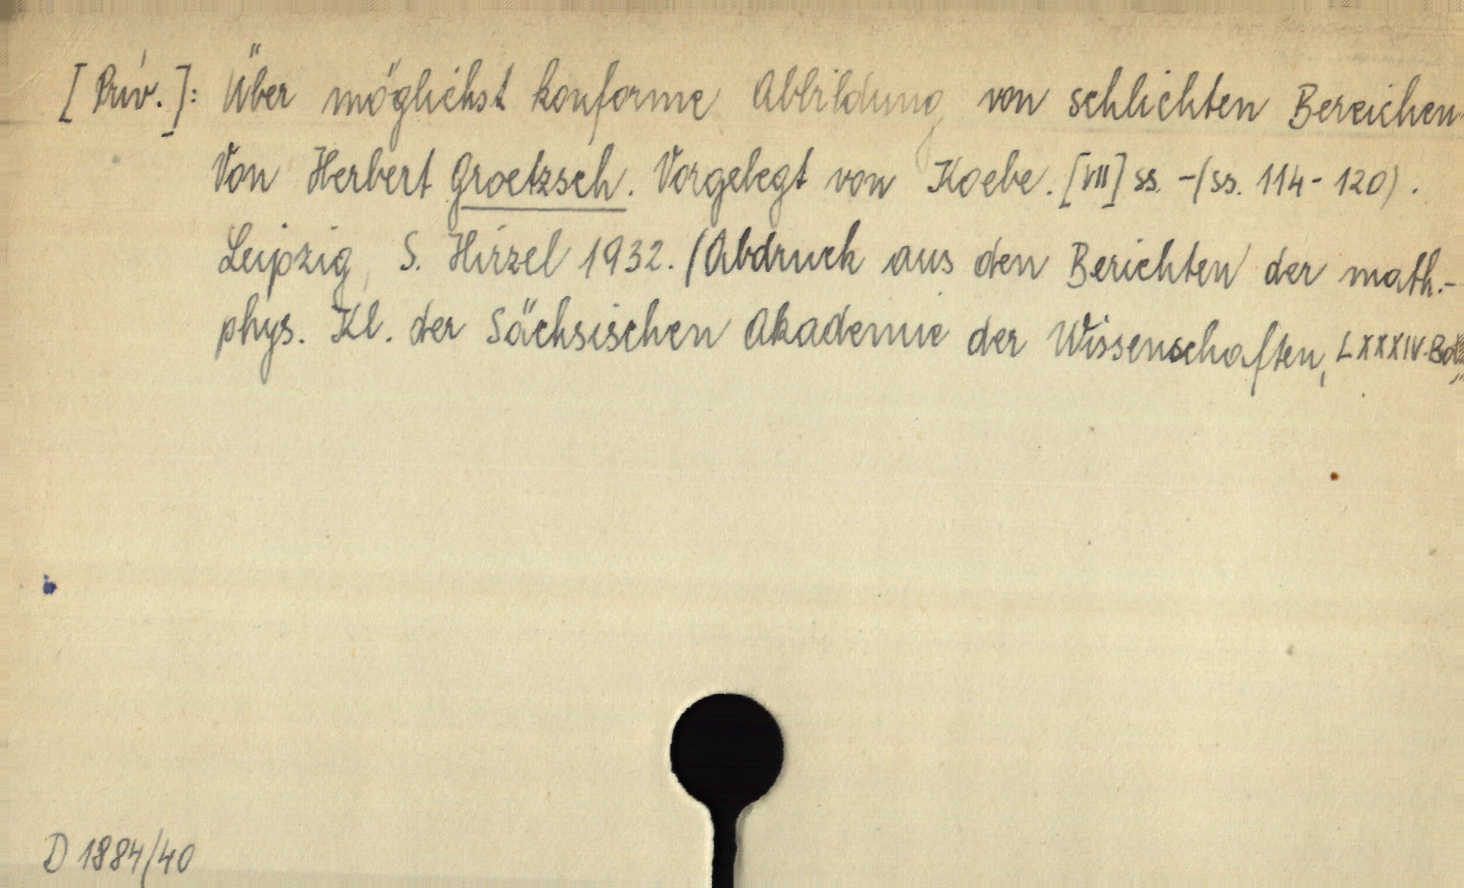 [Priv.]: Über möglichst konforme Abbildung von schlichten Bereichen.
Von Herbert Groetzsch. Vorgelegt von Koebe. [VII] ss. - (ss. 114-120).
Leipzig, S. Hirzel 1932. (Abdruck aus den Berichten der math.-
phys. Kl. der Sächsischen Akademie der Wissenschaften, LXXXIV. Bd
D 1884/40